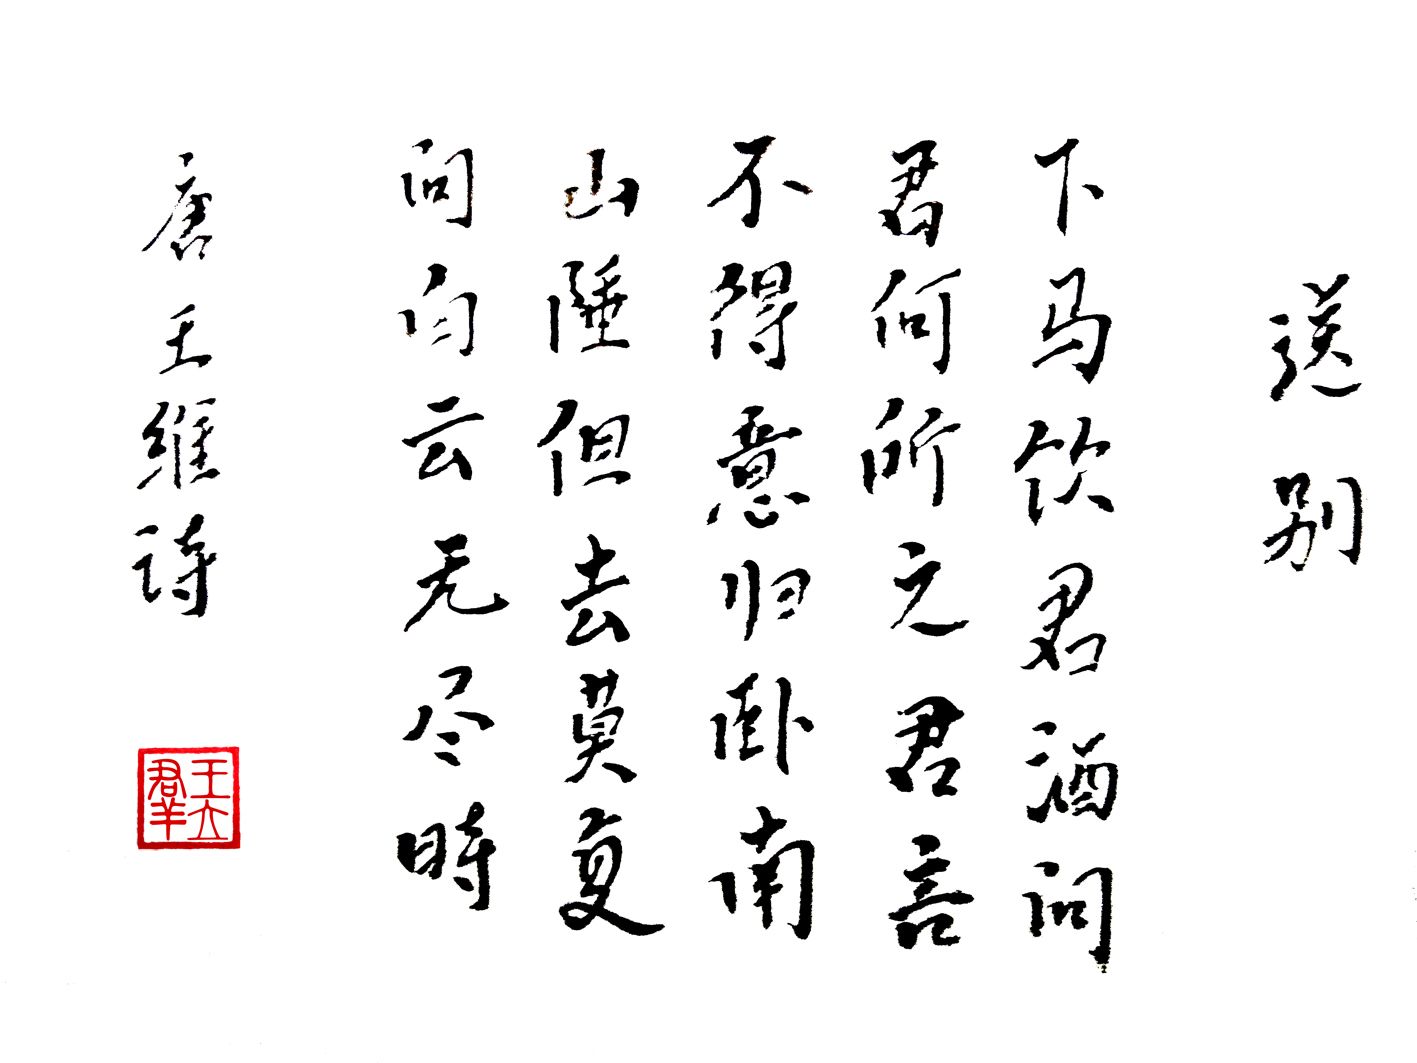 送别
下马饮君酒问
君何所之君言
不得意归卧南
山陲但去莫复
问白云无尽時
唐王维诗
王立羣